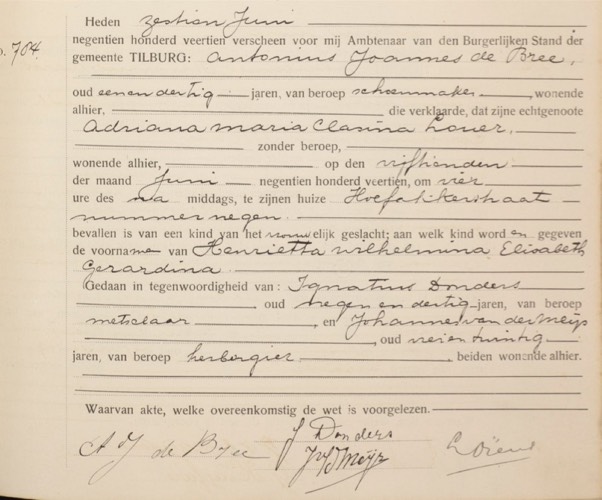 Heden zestien Juni
No. 704.
negentien honderd veertien verscheen voor mij Ambtenaar van den Burgerlijken Stand der
gemeente TILBURG: Antonius Joannes de Bree,
oud eenendertig jaren, van beroep schoenmaker, wonende
alhier, die verklaarde, dat zijne echtgenoote
Adriana Maria Clasina
zonder beroep,
wonende alhier, op den vijftienden
der maand Juni negentien honderd veertien, om vier
ure des na middags, te zijnen huize Hoefakkerstraat
nummer negen.
bevallen is van een kind van het vrouwelijk geslacht; aan welk kind worden gegeven
de voornamen van Henrietta Wilhelmina Elisabeth
Gerardina
Gedaan in tegenwoordigheid van: Ignatius Donders
oud negenendertig jaren, van beroep
metselaar, en Johannes van der Meijs
, oud
jaren, van beroep herbergier, beiden wonende alhier.
Waarvan akte, welke overeenkomstig de wet is voorgelezen.
A J de Bree
J Donders